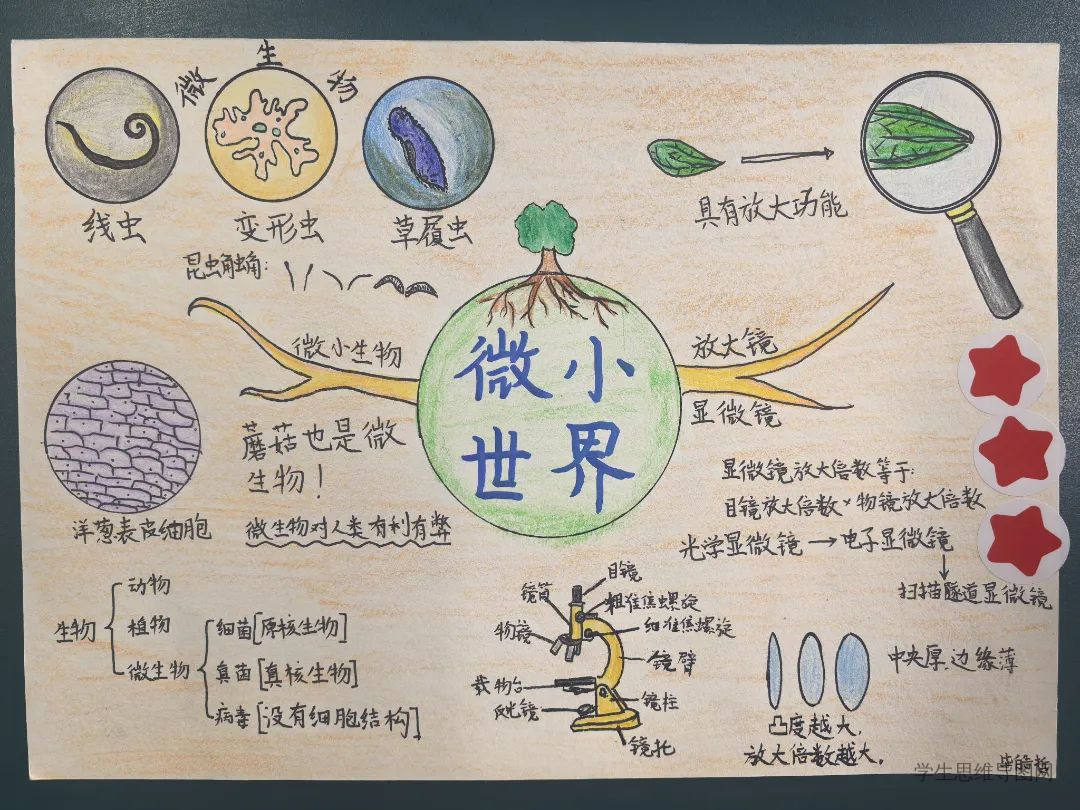 微生物
线虫
变形虫
草履虫
昆虫触角:
具有放大功能
微小生物
放大镜
显微镜
微小
世界
蘑菇也是微
生物!
洋葱表皮细胞
微生物对人类有利有弊
显微镜放大倍数等于:
目镜放大倍数×物镜放大倍数
光学显微镜→电子显微镜
扫描隧道显微镜
生物
动物
植物
微生物
细菌[原核生物]
真菌[真核生物]
病毒[没有细胞结构]
目镜
镜筒
粗准焦螺旋
物镜
细准焦螺旋
镜臂
载物台
反光镜
镜柱
镜托
中央厚,边缘薄
凸度越大,
放大倍数越大。
学生思维导图网